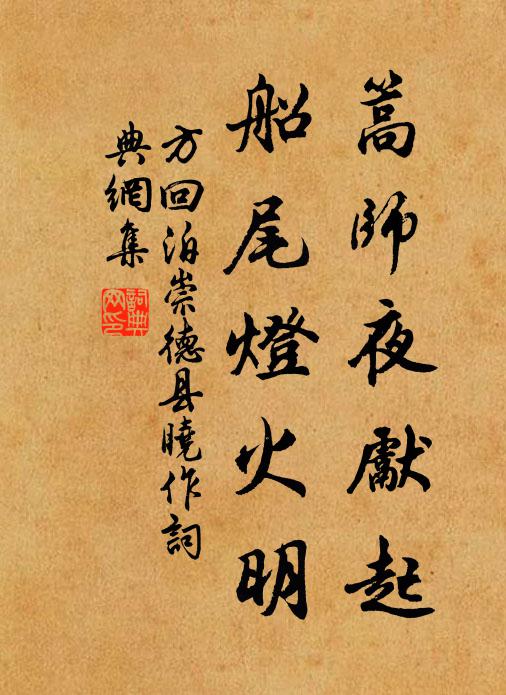 篙師夜獻起
船尾燈火明
方回泊崇德县曉作詞
典網集
詞典
网印